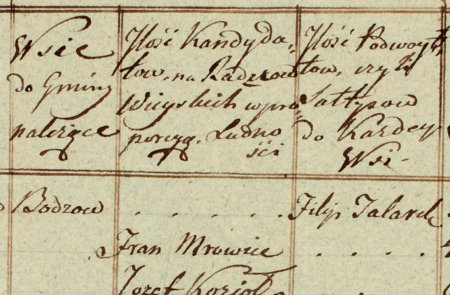 Wsie
do Gminy
należące
Ilość Kandyda-
tow, na Radzcow
Wieyskich w pro-
porcyą. Ludno
ści
Ilość Podwoyt,
tow, czyli
Sałtysow
do Każdey
Wsi.
Bodzow . . . . . Filip Talarek
Fran Mrowiec . . . .
Jozef Kozioł